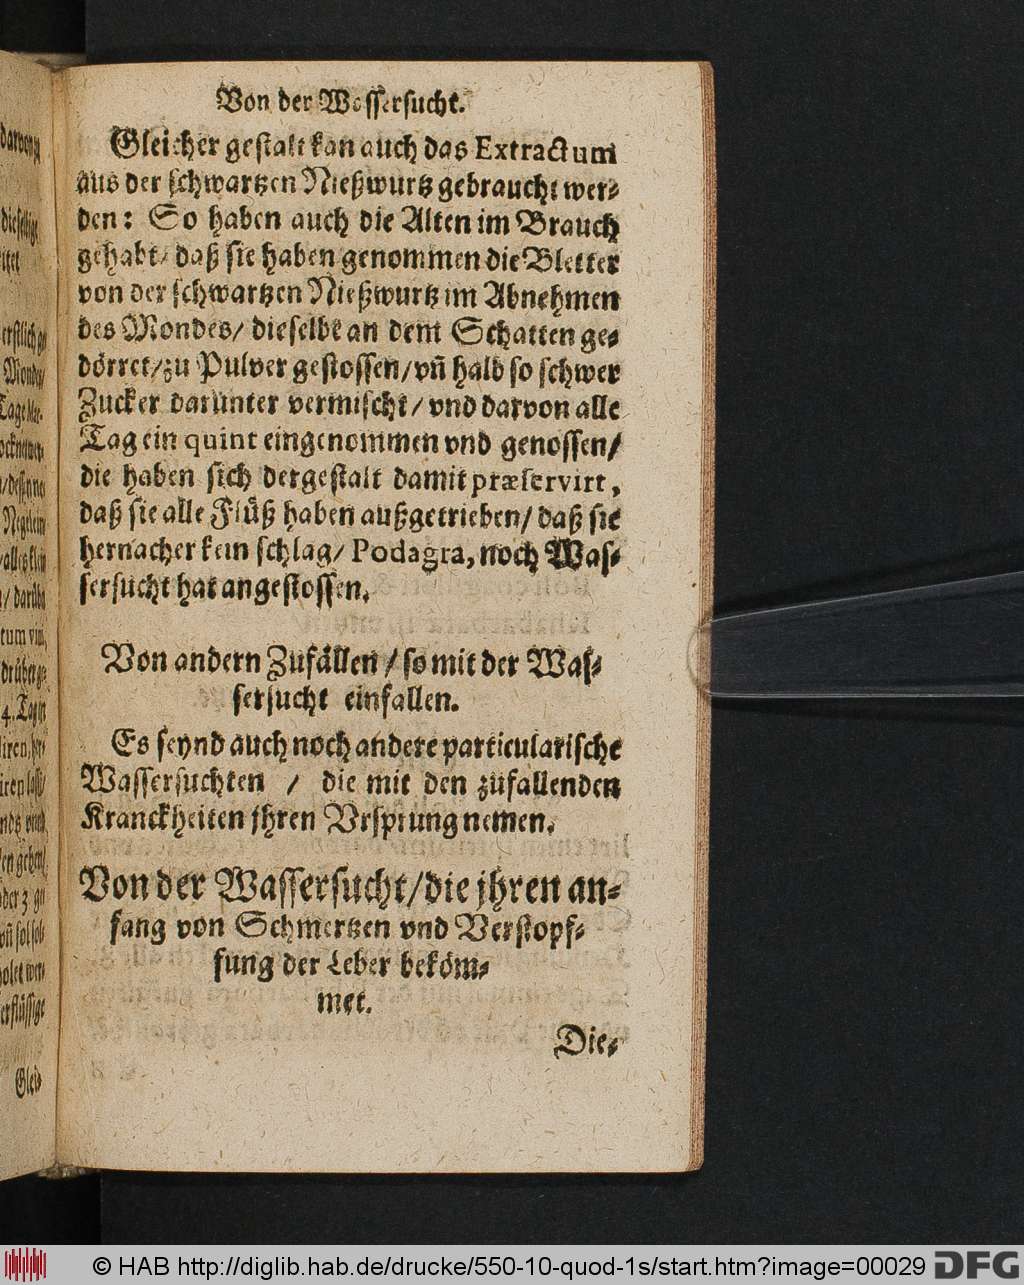 Von der Wassersucht.
Gleicher gestalt kan auch das Extractum
aus der schwartzen Nießwurtz gebraucht wer⸗
den: So haben auch die Alten im Brauch
gehabt/ daß sie haben genommen die Bletter
von der schwartzen Nießwurtz im Abnehmen
des Mondes/ dieselbe an dem Schatten ge⸗
dörret/ zu Pulver gestossen/ vñ halb so schwer
Zucker darunter vermischt/ vnd darvon alle
Tag ein quint eingenommen vnd genossen/
die haben sich dergestalt damit præservirt,
daß sie alle Flüß haben außgetrieben/ daß sie
hernacher kein schlag/ Podagra, noch Was⸗
sersucht hat angestossen.
Von andern Zufällen/ so mit der Was⸗
sersucht einfallen.
Es seynd auch noch andere particularische
Wassersuchten / die mit den zufallenden
Kranckheiten jhren Vrsprung nemen.
Von der Wassersucht/ die jhren an⸗
fang von Schmertzen vnd Verstopf⸗
fung der Leber beköm⸗
met.
Die⸗
darvon
dieselbige
erstlich
Monds/
Tage
Negelein
alles klein
/ darüber
tum vini,
drüber ge⸗
4. Tag
liren,
en gehen/
oder 3
vñ sol
Glei⸗
© HAB http://diglib.hab.de/drucke/550-10-quod-1s/start.htm?image=00029
DFG